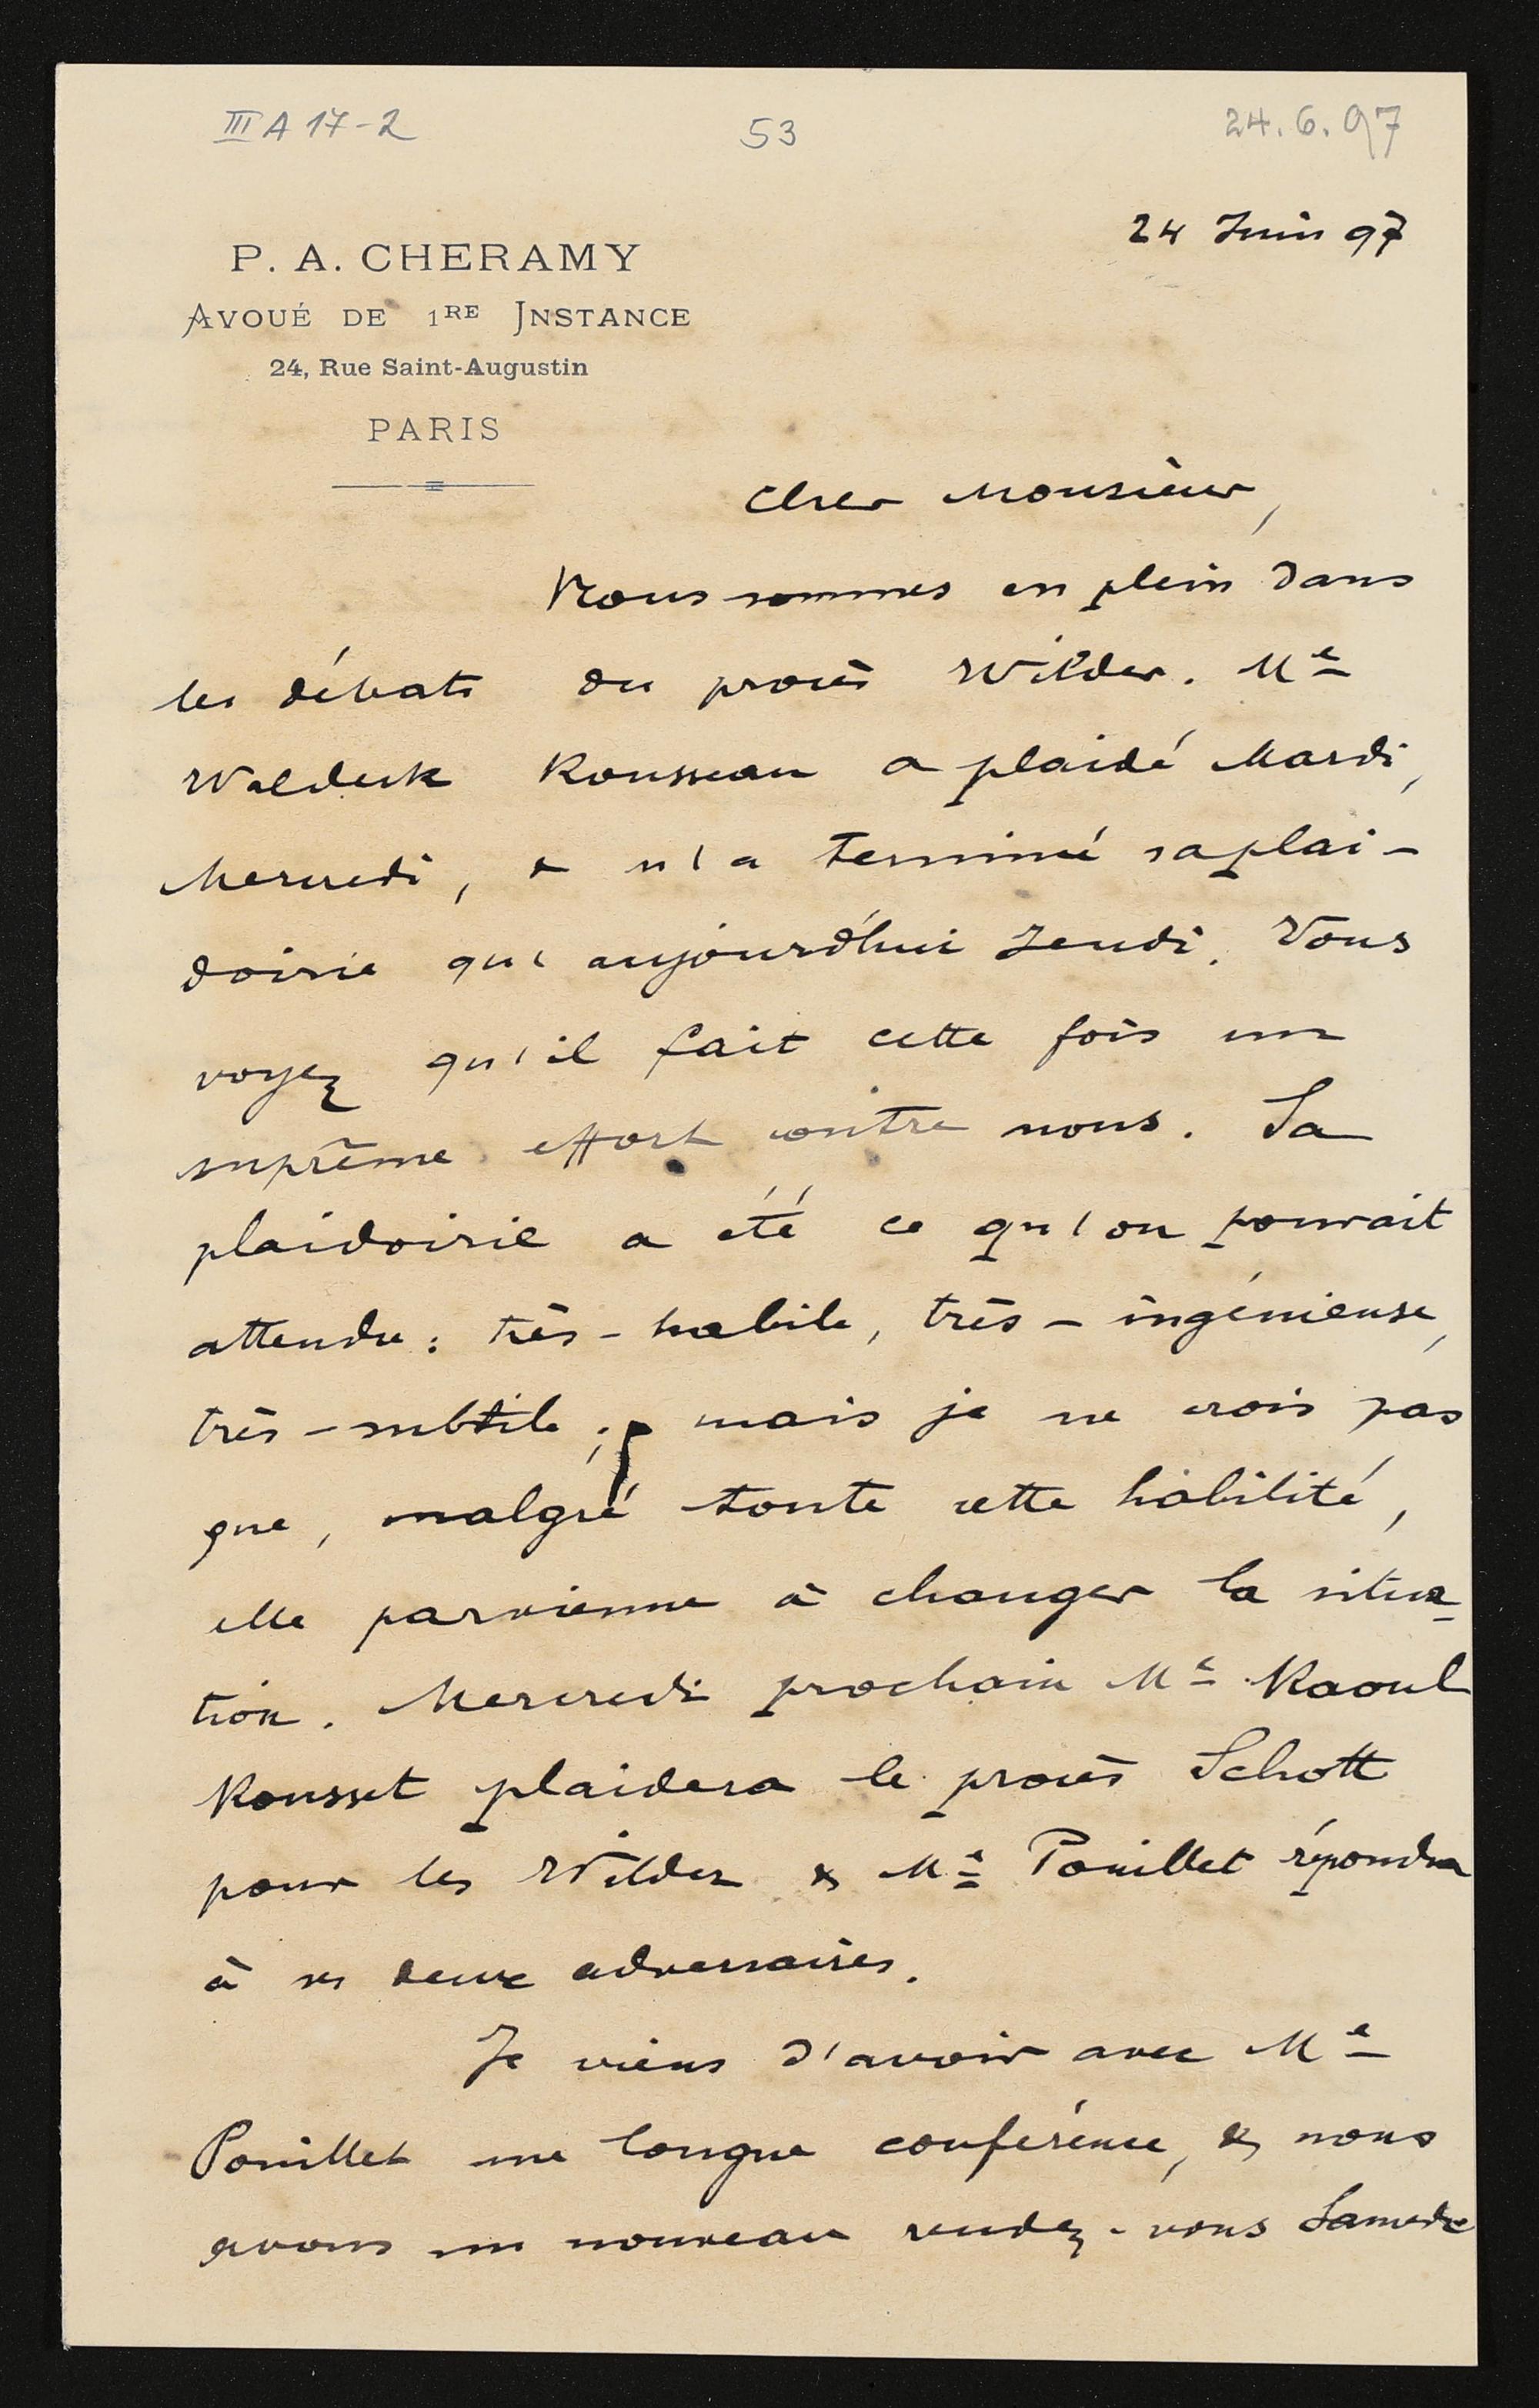 III A 17-2
53
24.6.97
24 Juin 97
P. A. CHERAMY
AVOUÉ DE 1RE INSTANCE
24, Rue Saint-Augustin
PARIS
Cher Monsieur,
Nous sommes en plein dans
les débats du procès Wilder. Me
Waldeck Rousseau a plaidé Mardi,
Mercredi, & n'a terminé sa plai-
doirie qu'aujourd'hui Jeudi. Vous
voyez qu'il fait cette fois un
suprême effort contre nous. Sa
plaidoirie a été ce qu'on pouvait
attendre : très-habile, très-ingénieuse,
très-subtile ; mais je ne crois pas
que, malgré toute cette habilité,
elle parvienne à changer la situa-
tion. Mercredi prochain Me Raoul
Rousset plaidera le procès Schott
pour les Wilder & Me Pouillet répondra
à ses deux adversaires.
Je viens d'avoir avec Me
Pouillet une longue conférence, & nous
avons un nouveau rendez-vous Samedi